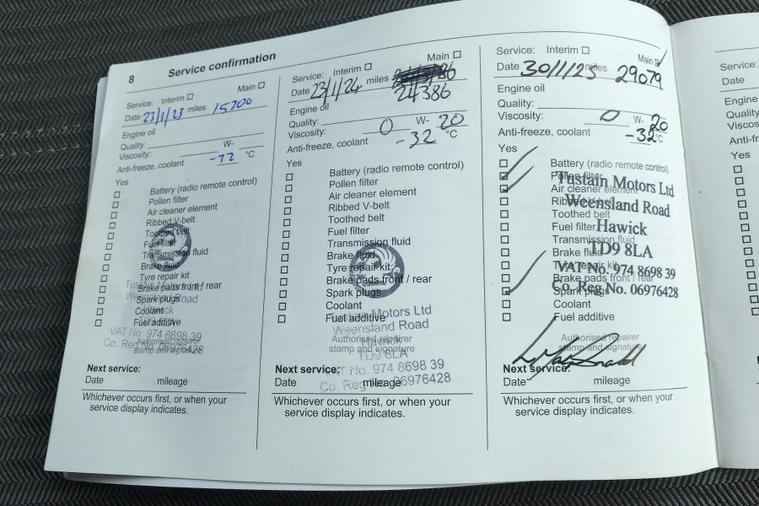 8
Service confirmation
Service: Interim ☐ Main ☐
Date 23/1/23 miles 15200
Engine oil
Quality:
Viscosity: W-
Anti-freeze, coolant °C
Yes
☐ Battery (radio remote control)
☐ Pollen filter
☐ Air cleaner element
☐ Ribbed V-belt
☐ Toothed belt
☐ Fuel filter
☐ Transmission fluid
☐ Brake fluid
☐ Tyre repair kit
☐ Brake pads front / rear
☐ Spark plugs
☐ Coolant
☐ Fuel additive
Weensland Road
VAT No. 974 8698 39
Co. Reg No. 06976428
Authorised repairer
stamp and signature
Next service:
Date mileage
Whichever occurs first, or when your
service display indicates.
Service: Interim ☐ Main ☐
Date 23/1/24 miles
24386
Engine oil
Quality:
Viscosity: 0 W- 20
Anti-freeze, coolant -32 °C
Yes
☐ Battery (radio remote control)
☐ Pollen filter
☐ Air cleaner element
☐ Ribbed V-belt
☐ Toothed belt
☐ Fuel filter
☐ Transmission fluid
☐ Brake fluid
☐ Tyre repair kit
☐ Brake pads front / rear
☐ Spark plugs
☐ Coolant
☐ Fuel additive
Motors Ltd
Weensland Road
Hawick
TD9 8LA
No. 974 8698 39
Co. Reg No. 06976428
Authorised repairer
stamp and signature
Next service:
Date mileage
Whichever occurs first, or when your
service display indicates.
Service: Interim ☐ Main ☐
Date 30/1/25 miles 29079
Engine oil
Quality:
Viscosity: 0 W- 20
Anti-freeze, coolant -32 °C
Yes
☐ Battery (radio remote control)
☐ Pollen filter
☐ Air cleaner element
☐ Ribbed V-belt
☐ Toothed belt
☐ Fuel filter
☐ Transmission fluid
☐ Brake fluid
☐ Tyre repair kit
☐ Brake pads front / rear
☐ Spark plugs
☐ Coolant
☐ Fuel additive
Tustain Motors Ltd
Weensland Road
Hawick
TD9 8LA
VAT No. 974 8698 39
Co. Reg No. 06976428
Authorised repairer
stamp and signature
Next service:
Date mileage
Whichever occurs first, or when your
service display indicates.
Service:
Date
Engine
Quality:
Yes